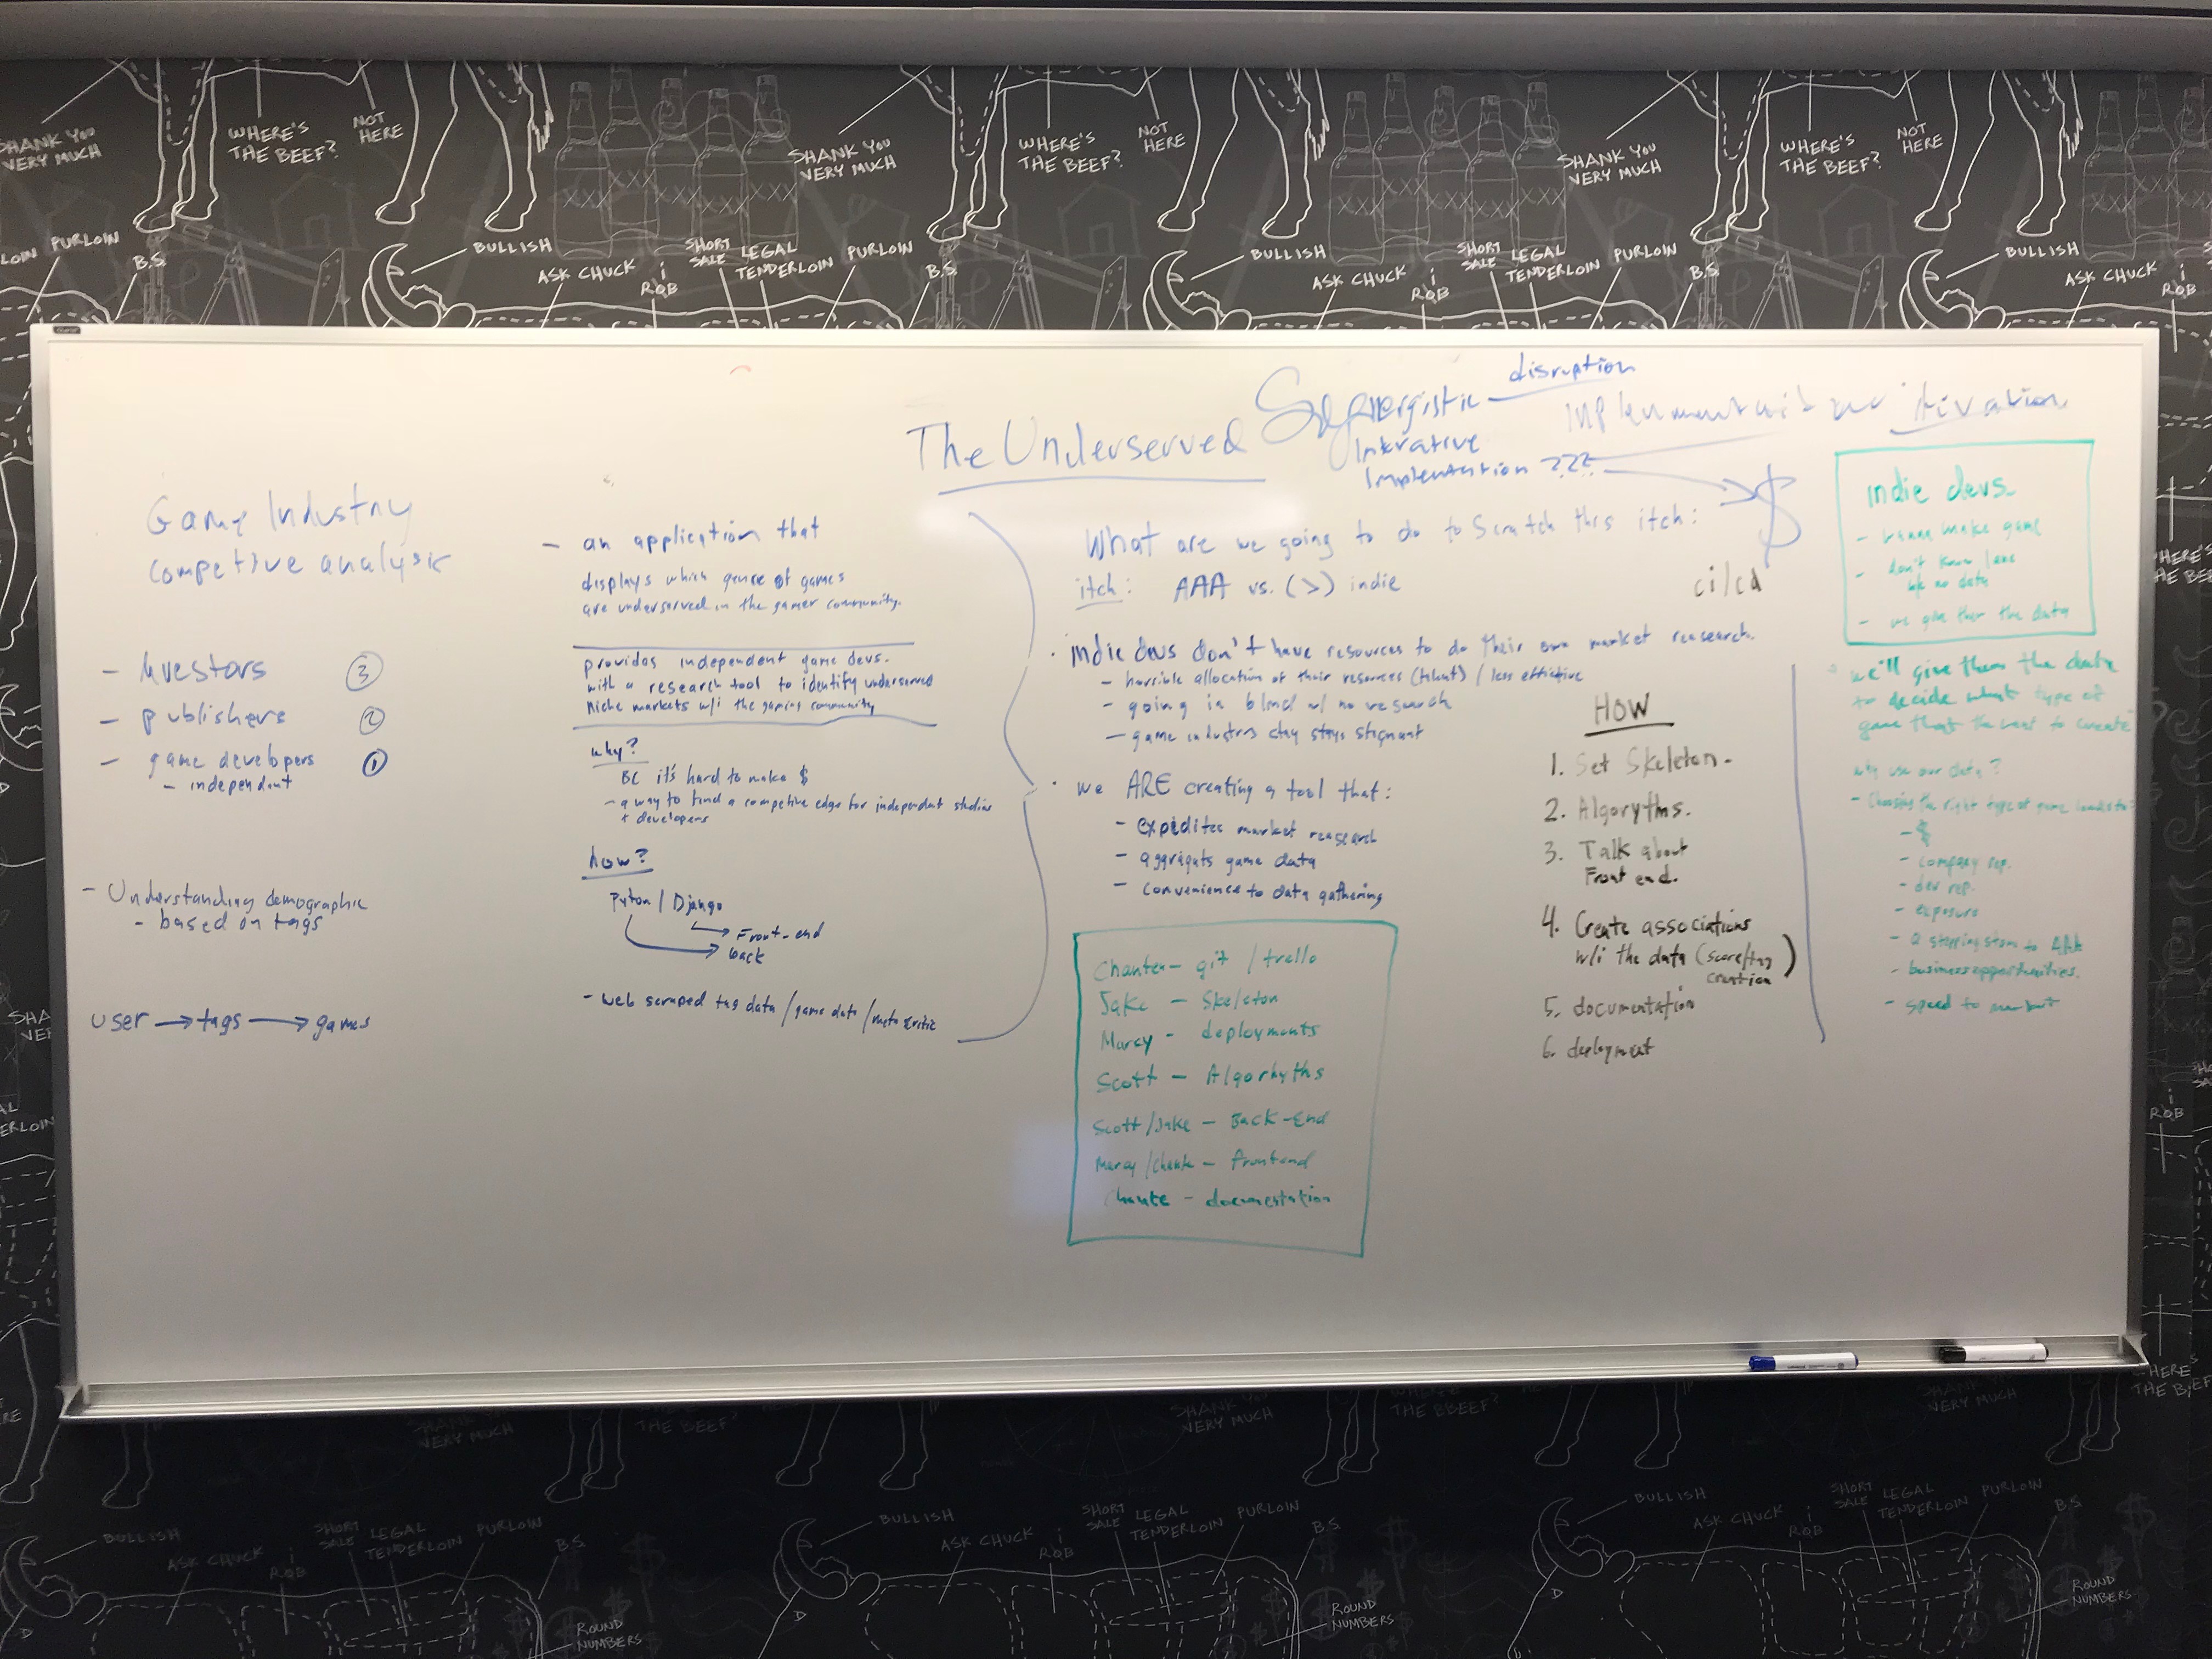 SHANK YOU
VERY MUCH
WHERE'S
THE BEEF?
NOT
HERE
SHANK YOU
VERY MUCH
WHERE'S
THE BEEF?
NOT
HERE
SHANK YOU
VERY MUCH
WHERE'S
THE BEEF?
NOT
HERE
LOIN
PURLOIN
B.S.
BULLISH
ASK CHUCK
i
ROB
SHORT
SALE
LEGAL
TENDERLOIN
PURLOIN
B.S.
BULLISH
ASK CHUCK
i
ROB
SHORT
SALE
LEGAL
TENDERLOIN
PURLOIN
B.S.
BULLISH
ASK CHUCK
i
ROB
The Underserved
Synergistic disruption
Implementation ???
itivation
$
Game Industry
competive analysis
- Investors ③
- publishers ②
- game developers ①
- independant
- Understanding demographic
- based on tags
user → tags → games
- an application that
displays which genre of games
are underserved in the gamer community.
provides independent game devs.
with a research tool to identify underserved
niche markets w/i the gaming community
why?
BC it's hard to make $
- a way to find a competive edge for independent studios
+ developers
how?
Pyton / Django
→ Front-end
→ back
- web scraped tag data / game data / meta critic
What are we going to do to Scratch this itch:
itch: AAA vs. (>) indie
ci/cd
· indie devs don't have resources to do their own market reasearch.
- horrible allocation of their resources (talent) / less effective
- going in blind w/ no research
- game industry stay stays stagnant
· we ARE creating a tool that:
- expidites market reasearch
- aggrigats game data
- convenience to data gathering
- git / trello
Jake - Skeleton
Marcy - deployments
Scott - Algorhyths
Scott/Jake - Back-End
Marcy / - frontend
Chante - documentation
HOW
1. Set Skeleton.
2. Algorythms.
3. Talk about
Front end.
4. Create associations
w/i the data (score/tag
creation)
5. documentation
6. deployment
indie devs.
- wanna make game
- don't know
no data
- we give them the data
we'll give them the data
to decide what type of
game that the want to create
why use our data?
- Choosing the right type of game leads to:
- $
- company rep.
- dev rep.
- exposure
- a stepping stone to AAA
- business opportunities.
- speed to market
BULLISH
ASK CHUCK
i
ROB
SHORT
SALE
LEGAL
TENDERLOIN
PURLOIN
B.S.
ROUND
NUMBERS
BULLISH
ASK CHUCK
i
ROB
SHORT
SALE
LEGAL
TENDERLOIN
PURLOIN
B.S.
ROUND
NUMBERS
BULLISH
ASK CHUCK
i
ROB
SHORT
SALE
LEGAL
TENDERLOIN
PURLOIN
B.S.
ROUND
NUMBERS